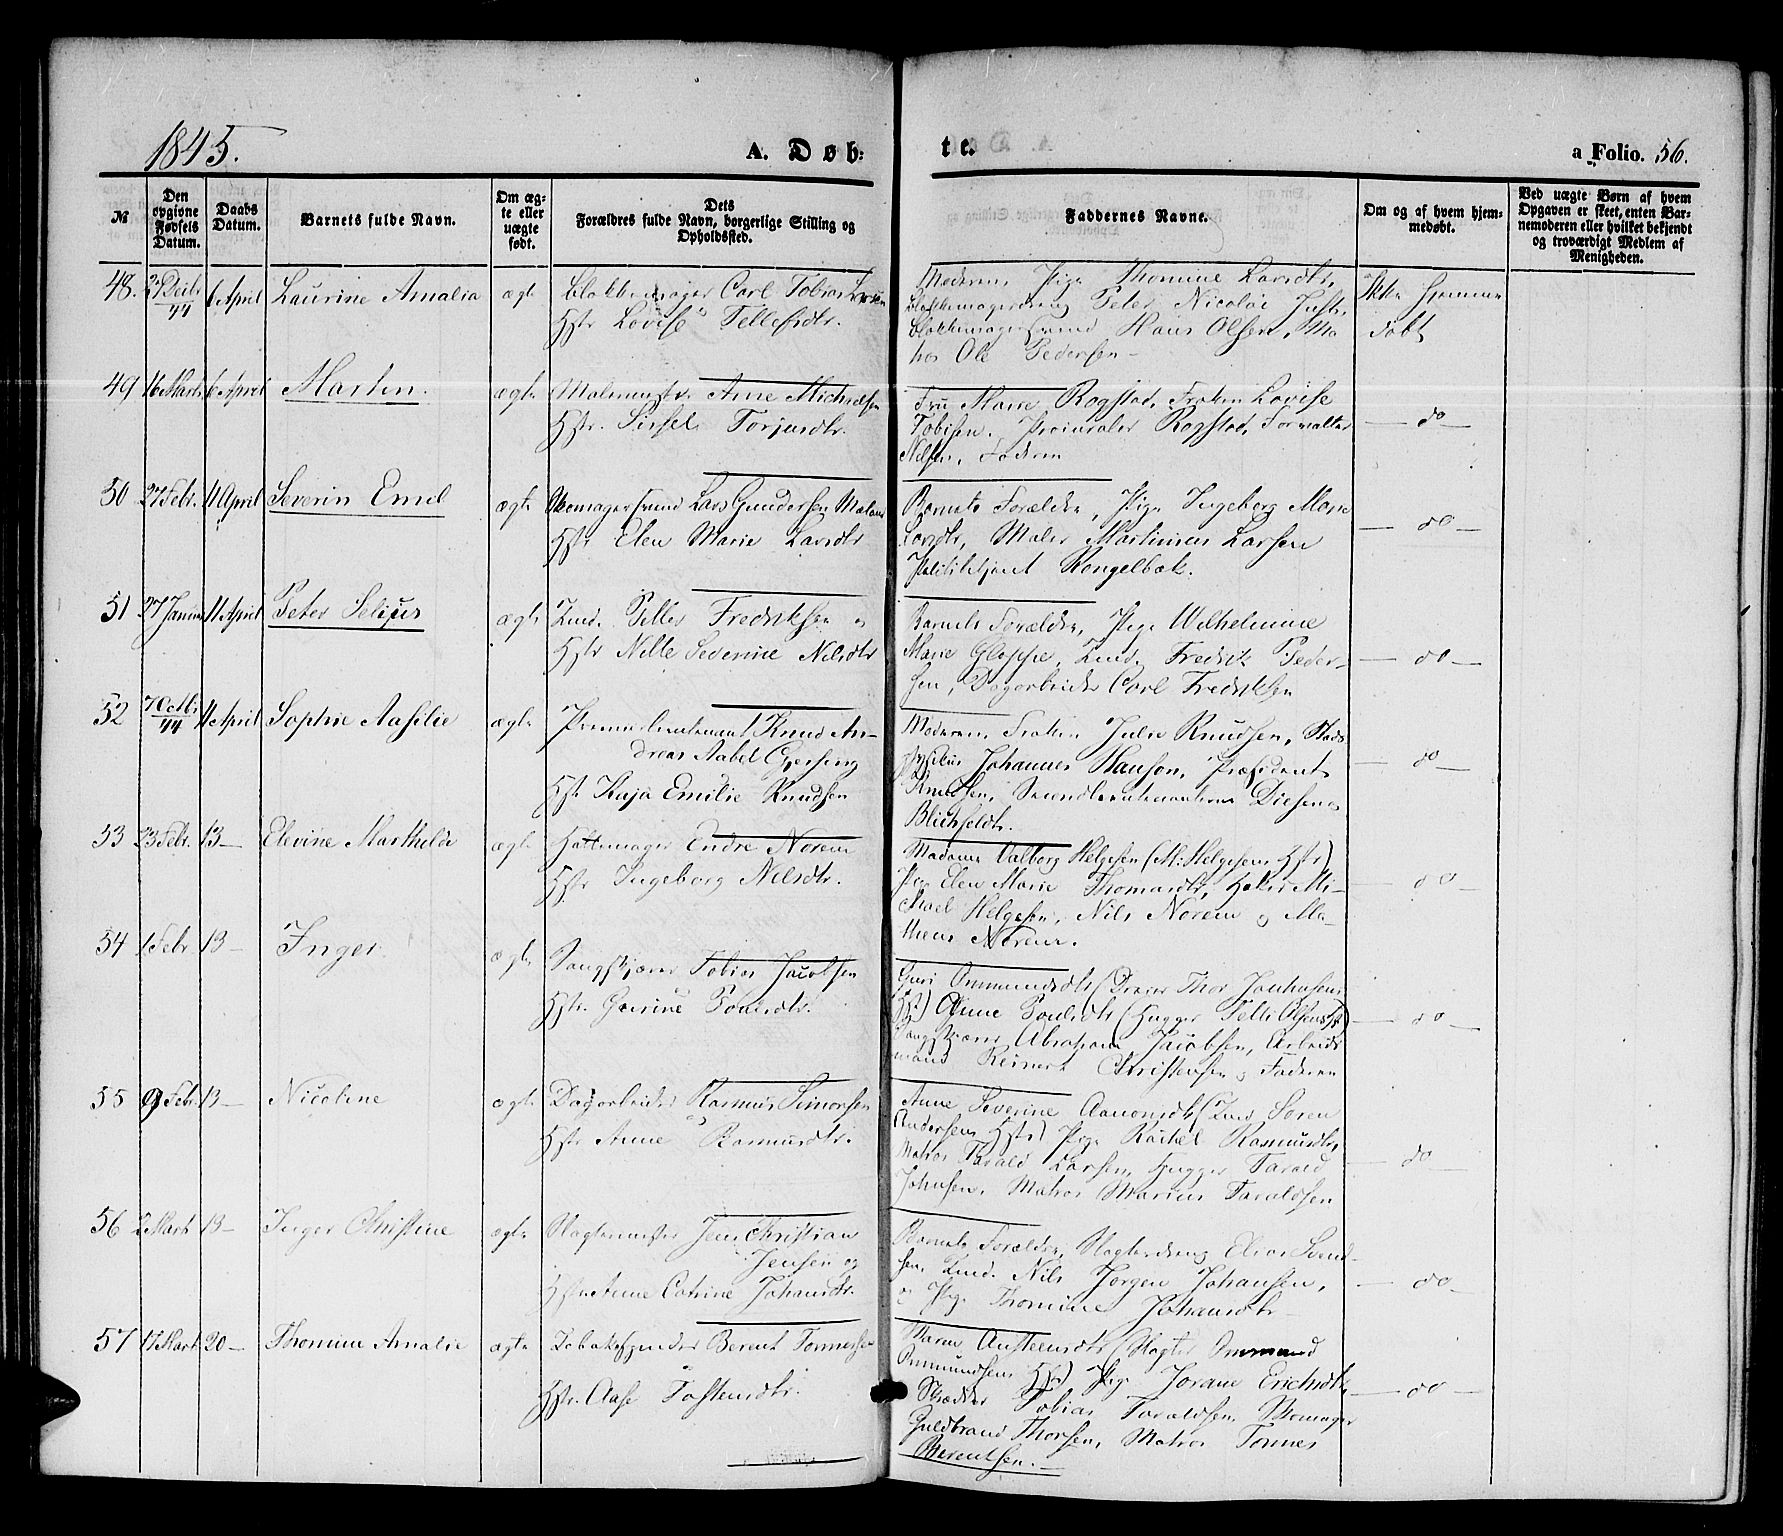 1845.
A. Døb:
te.
a Folio. 56.
№
Den opgivne Fødsels Datum.
Daabs Datum.
Barnets fulde Navn.
Om ægte eller uægte født.
Dets Forældres fulde Navn, borgerlige Stilling og Opholdssted.
Faddernes Navne.
Om og af hvem hjemmedøbt.
Ved uægte Børn af hvem Opgaven er skeet, enten Barnemoderen eller hvilket bekjendt og troværdigt Medlem af Menigheden.
48. 6 April Laurine Amalia ægte Blokkemager Carl Tobias
Hstr Lovise Tellefsdtr.
Moderen, Pige Thomine Larsdtr,
Blokkemagerdreng Peter Nicolai
Blokkemagersvend Hans Olsen, Ma
tros Ole Pedersen
Ikke hjemme
døbt
49 16 Marts 6 April Morten. ægte Arne Michelsen
Hstr. Sissel Torjusdtr.
Fru Marie Rogstad, Frøken Lovise
Tobisen, Rogstad, Forvalter
Nilsen, Faderen
do
50 27 Febr. 11 April Severin Emil ægte Skomagersvend Lars Gundersen
Hstr Elen Marie Larsdtr
Barnets Forældre, Pige Ingeborg Marie
Larsdtr, Maler Martinius Larsen
Politibetjent Kongelbæk.
do
51 27 Januar 11 April Peter Selius ægte Lund. Pelle Fredriksen
Hstr Nille Severine Nilsdtr
Barnets Forældre, Pige Wilhelmine
Marie Gloppe, Fredrik Peder-
sen, Dagarbeider Carl Fredriksen
do
52 7 Octbr 44 11 April Sophie Aasilie ægte Premierlieutenant Knud An-
dreas Aabel Gjersing
Hstr Kaja Emilie Knudsen
Moderen, Frøken Julie Knudsen, Stads
fysikus Johannes Hanson, Præsident
Knudsen, Secondlieutenanterne Diesen og
Blichfeldt.
do
53 23 Febr. 13 Elevine Marthilde ægte Hattemager Endre Norem
Hstr Ingeborg Nilsdtr.
Madame Valborg Helgesen (M. Helgesens Hstr)
Pige Elen Marie Thomasdtr, Høker Mi-
chael Helgesen, Nils Norem og Ma-
theus Norem.
do
54 1 Febr 13 Inger. ægte Tobias Jacobsen
Hstr. Gurine Poulsdtr.
Guri Ommundsdtr (Drager Thor
Hstr) Anne Poulsdtr (Hugger Pelle Olsens Hstr)
Abraham Jacobsen, Arbeids
mand Reinert Christensen og Faderen
do
55 9 Febr. 13 Nicoline ægte Dagarbeider Rasmus Simonsen
Hstr Anne Rasmusdtr.
Anne Severine Aanonsdtr Søren
Andersens Hstr) Pige Rachel Rasmusdtr,
Matros Tarald Larsen, Hugger Tarald
Johnsen, Matros Marius Taraldsen
do
56 2 Mart 13 Inger Christine ægte Slagtermester Jens Christian
Jensen og
Hstr Anne Catrine Johansdtr.
Barnets Forældre, Slagterdreng Elias Svend
sen, Nils Jørgen Johansen,
og Pige Thomine Johansdtr
do
57 17 Mart 20 Thomine Amalie ægte Tobakspinder Berent Tønnesen
Hstr. Aase Tostensdtr.
Maren Austeensdtr (Slagter Ommund
Ommundsens Hstr) Pige Jorane Erichsdtr,
Skrædder Tobias Taraldsen, Skomager
Guldbrand Thorsen, Matros Tønnes
Berentsen.
do